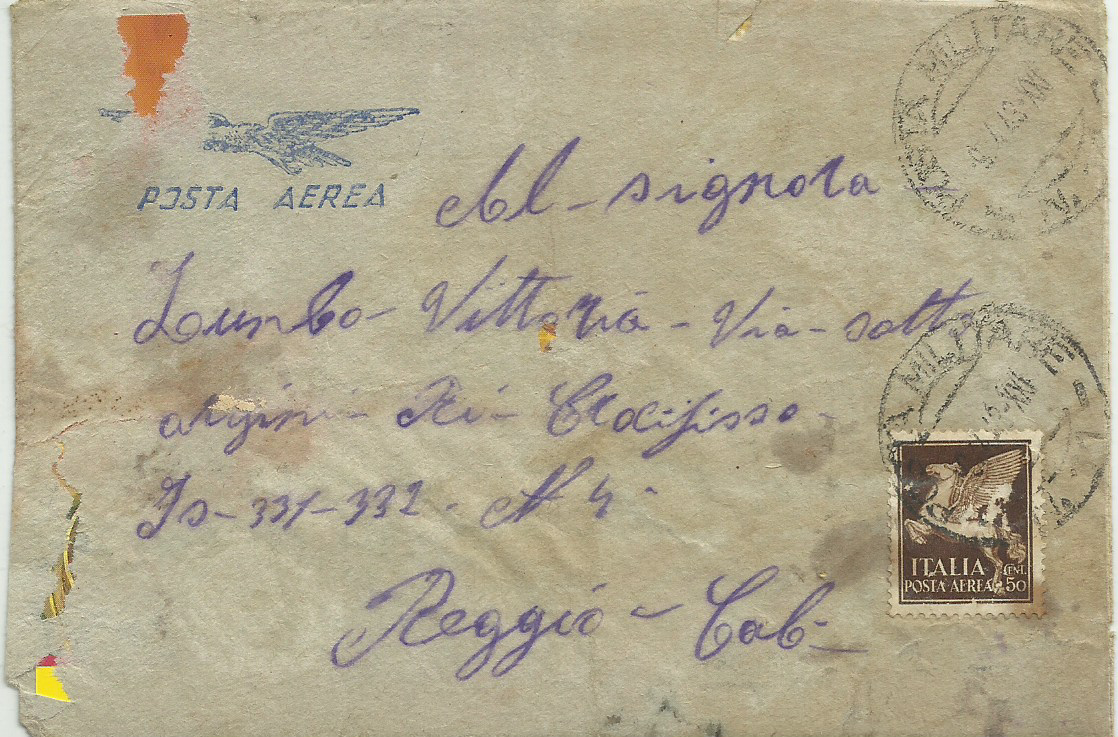 POSTA AEREA
Al - signora
Zumbo - Vittoria - Via - sotto
argini - Ri - Crocifisso -
Is - 331 - 332 . N 4 .
Reggio - Cab -
POSTA MILITARE
MILITARE
ITALIA
CENT.
POSTA AEREA 50